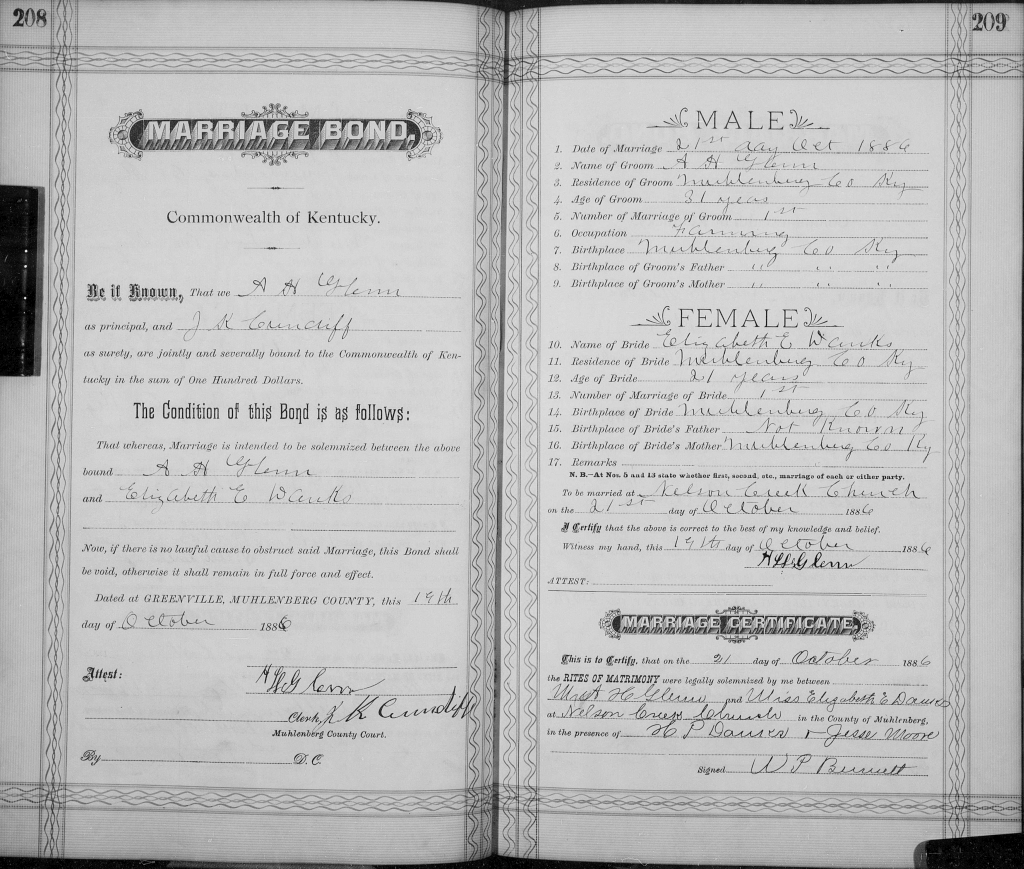 208
MARRIAGE BOND,
Commonwealth of Kentucky.
Be it Known, That we A H Glenn
as principal, and J K Cundiff
as surety, are jointly and severally bound to the Commonwealth of Ken-
tucky in the sum of One Hundred Dollars.
The Condition of this Bond is as follows:
That whereas, Marriage is intended to be solemnized between the above
bound A H Glenn
and Elizabeth E
Now, if there is no lawful cause to obstruct said Marriage, this Bond shall
be void, otherwise it shall remain in full force and effect.
Dated at GREENVILLE, MUHLENBERG COUNTY, this 19th
day of October 1886
Attest: A H Glenn
Clerk, K Cundiff
Muhlenberg County Court.
By D. C.
209
MALE
1. Date of Marriage 21st day Oct 1886
2. Name of Groom A H Glenn
3. Residence of Groom Muhlenberg Co Ky
4. Age of Groom 31 years
5. Number of Marriage of Groom 1st
6. Occupation Farming
7. Birthplace Muhlenberg Co Ky
8. Birthplace of Groom's Father " " "
9. Birthplace of Groom's Mother " " "
FEMALE
10. Name of Bride Elizabeth E
11. Residence of Bride Muhlenberg Co Ky
12. Age of Bride 21 years
13. Number of Marriage of Bride 1st
14. Birthplace of Bride Muhlenberg Co Ky
15. Birthplace of Bride's Father Not Known
16. Birthplace of Bride's Mother Muhlenberg Co Ky
17. Remarks
N. B.—At Nos. 5 and 13 state whether first, second, etc., marriage of each or either party.
To be married at Nelson Creek Church
on the 21st day of October 1886
I Certify that the above is correct to the best of my knowledge and belief.
Witness my hand, this 19th day of October 1886
A H Glenn
ATTEST:
MARRIAGE CERTIFICATE,
This is to Certify, that on the 21 day of October 1886
the RITES OF MATRIMONY were legally solemnized by me between
A H Glenn and Miss Elizabeth E
at Nelson Creek Church in the County of Muhlenberg,
in the presence of H P & Jesse Moore
Signed W P Bennett